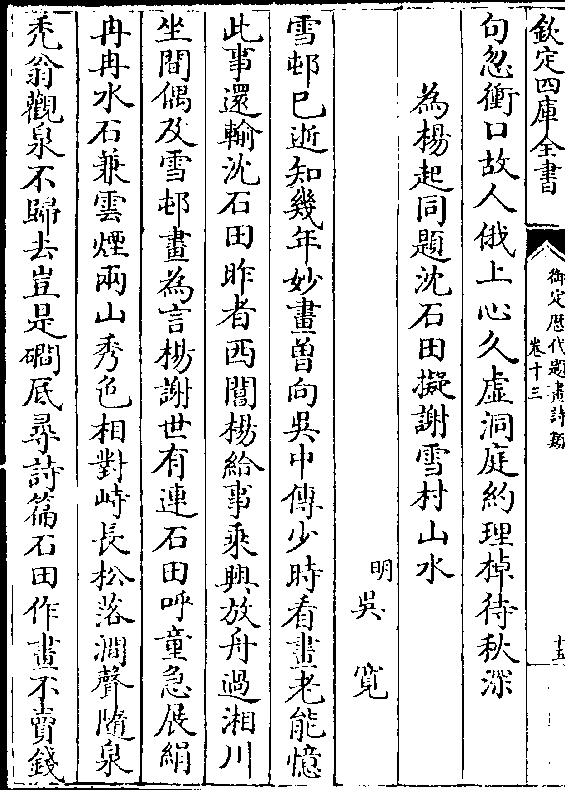 欽定四庫全書
御定歴代題畫詩類
卷十三
十五
句忽衝口故人俄上心久虚洞庭約理棹待秋深
為楊起同題沈石田擬謝雪村山水
明吳寛
雪邨已逝知幾年妙畫曽向吳中傳少時看畫老能憶
此事還輸沈石田昨者西閶楊給事乘興放舟過湘川
坐間偶及雪邨畫為言楊謝世有連石田呼童急展絹
冉冉水石兼雲煙兩山秀色相對峙長松落澗聲隨泉
秃翁觀泉不歸去豈是磵底尋詩篇石田作畫不賣錢